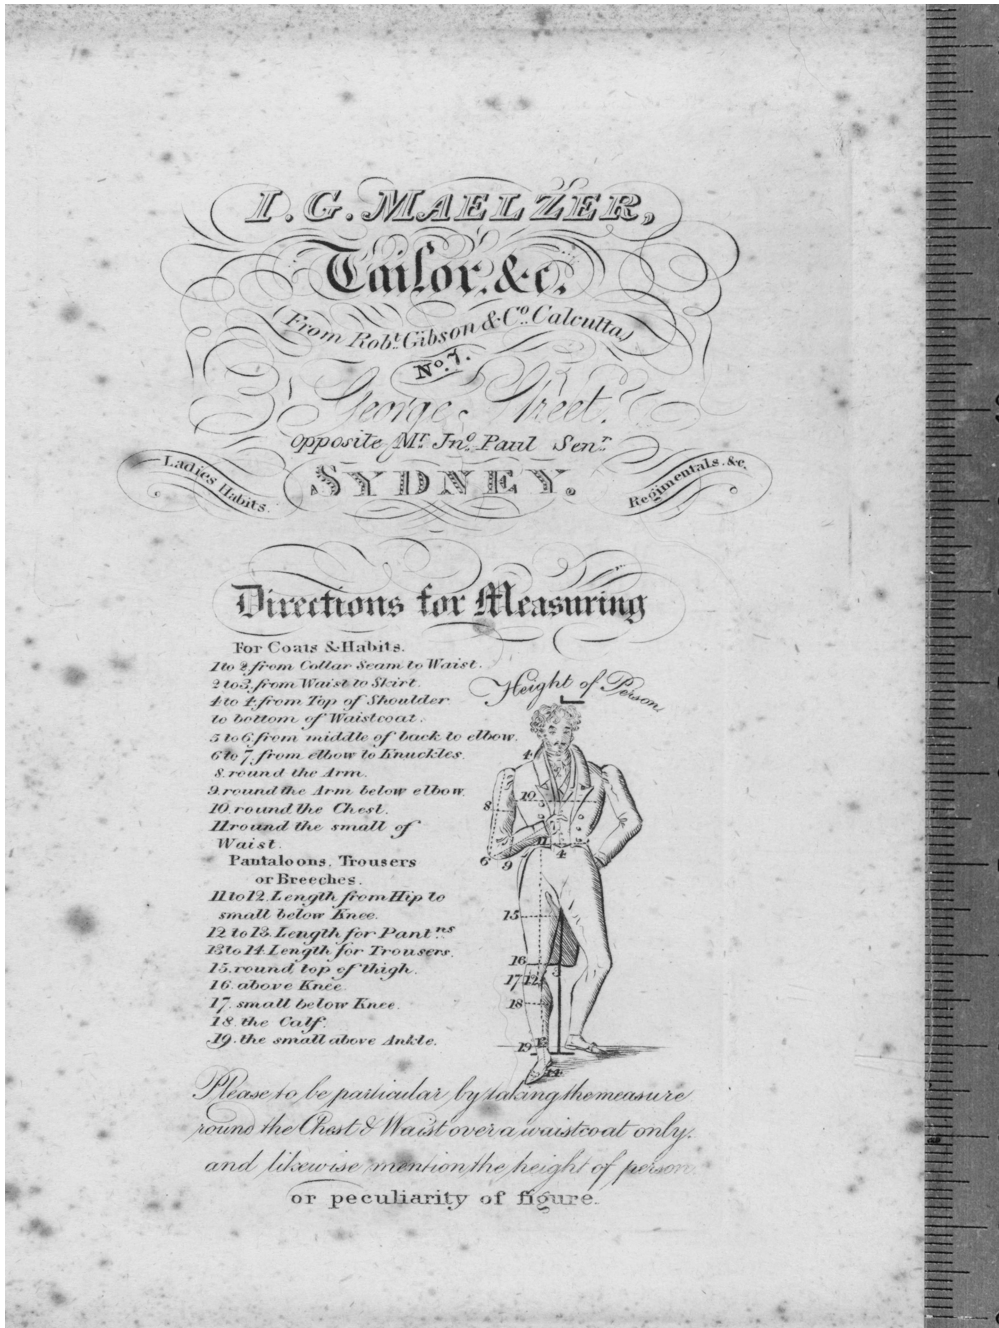 I. G. MAELZER,
Tailor. &c.
(From Robt. Gibson & Co. Calcutta)
No. 7.
George Street.
Opposite Mr. Jno. Paul Senr.
Ladies Habits.
SYDNEY.
Regimentals. &c.
Directions for Measuring
For Coats & Habits.
1 to 2. from Collar Seam to Waist.
2 to 3. from Waist to Skirt.
4 to 4. from Top of Shoulder
to bottom of Waistcoat.
5 to 6. from middle of back to elbow.
6 to 7. from elbow to Knuckles.
8. round the Arm.
9. round the Arm below elbow.
10. round the Chest.
11. round the small of
Waist.
Pantaloons. Trousers
or Breeches.
11 to 12. Length from Hip to
small below Knee.
12 to 13. Length for Pantns
13 to 14. Length for Trousers.
15. round top of thigh.
16. above Knee.
17. small below Knee.
18. the Calf.
19. the small above Ankle.
Height of Person
4
10
5
8
11
6
9
4
15
16
3
17
12
18
19
13
14
Please to be particular by taking the measure
round the Chest & Waist over a waistcoat only.
and likewise mention the height of person.
or peculiarity of figure.